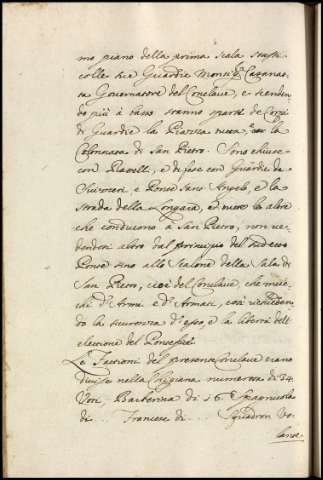 mo piano della prima scala sta si
colle sue Guardie Monsig.r Casanat
ta Governatore del Conclave, e scenden
do più à basso stanno sparsi de Corpi
di Guardie la Piazza tutta, con la
Colonnata di San Pietro. Sono chiuse
con Rastelli, e difese con Guardie da
Suizzeri, e Ponte Sant Angelo, e la
strada della Longara, et tutte le altre
che conducono à San Pietro, non ve
dendosi altro dal principio del sudetto
Ponte sino alle Scalone della Sala di
San Pietro, cioè del Conclave, che muc
chi d'Armi e d'Armati, così richieden
do la sicurezza d'esso, e la libertà dell
elettione del Pontefice.
Le Fattioni del presente Conclave erano
divise nella Chigiana numerosa di 24
Voti, Barberina di 16. Spagnuola
di... Francese di... Squadron Vo
lante